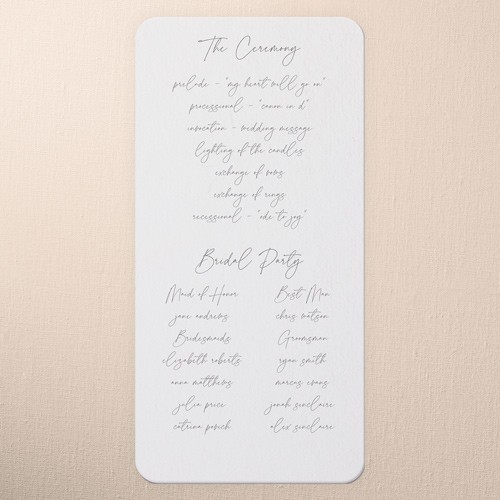 The Ceremony
prelude - "my heart will go on"
processional - "canon in d"
invocation - wedding message
lighting of the candles
exchange of vows
exchange of rings
recessional - "ode to joy"
Bridal Party
Maid of Honor Best Man
jane andrews chris watson
Bridesmaids Groomsman
elizabeth roberts ryan smith
anna matthews marcus evans
julia price jonah sinclaire
catrina povich alex sinclaire